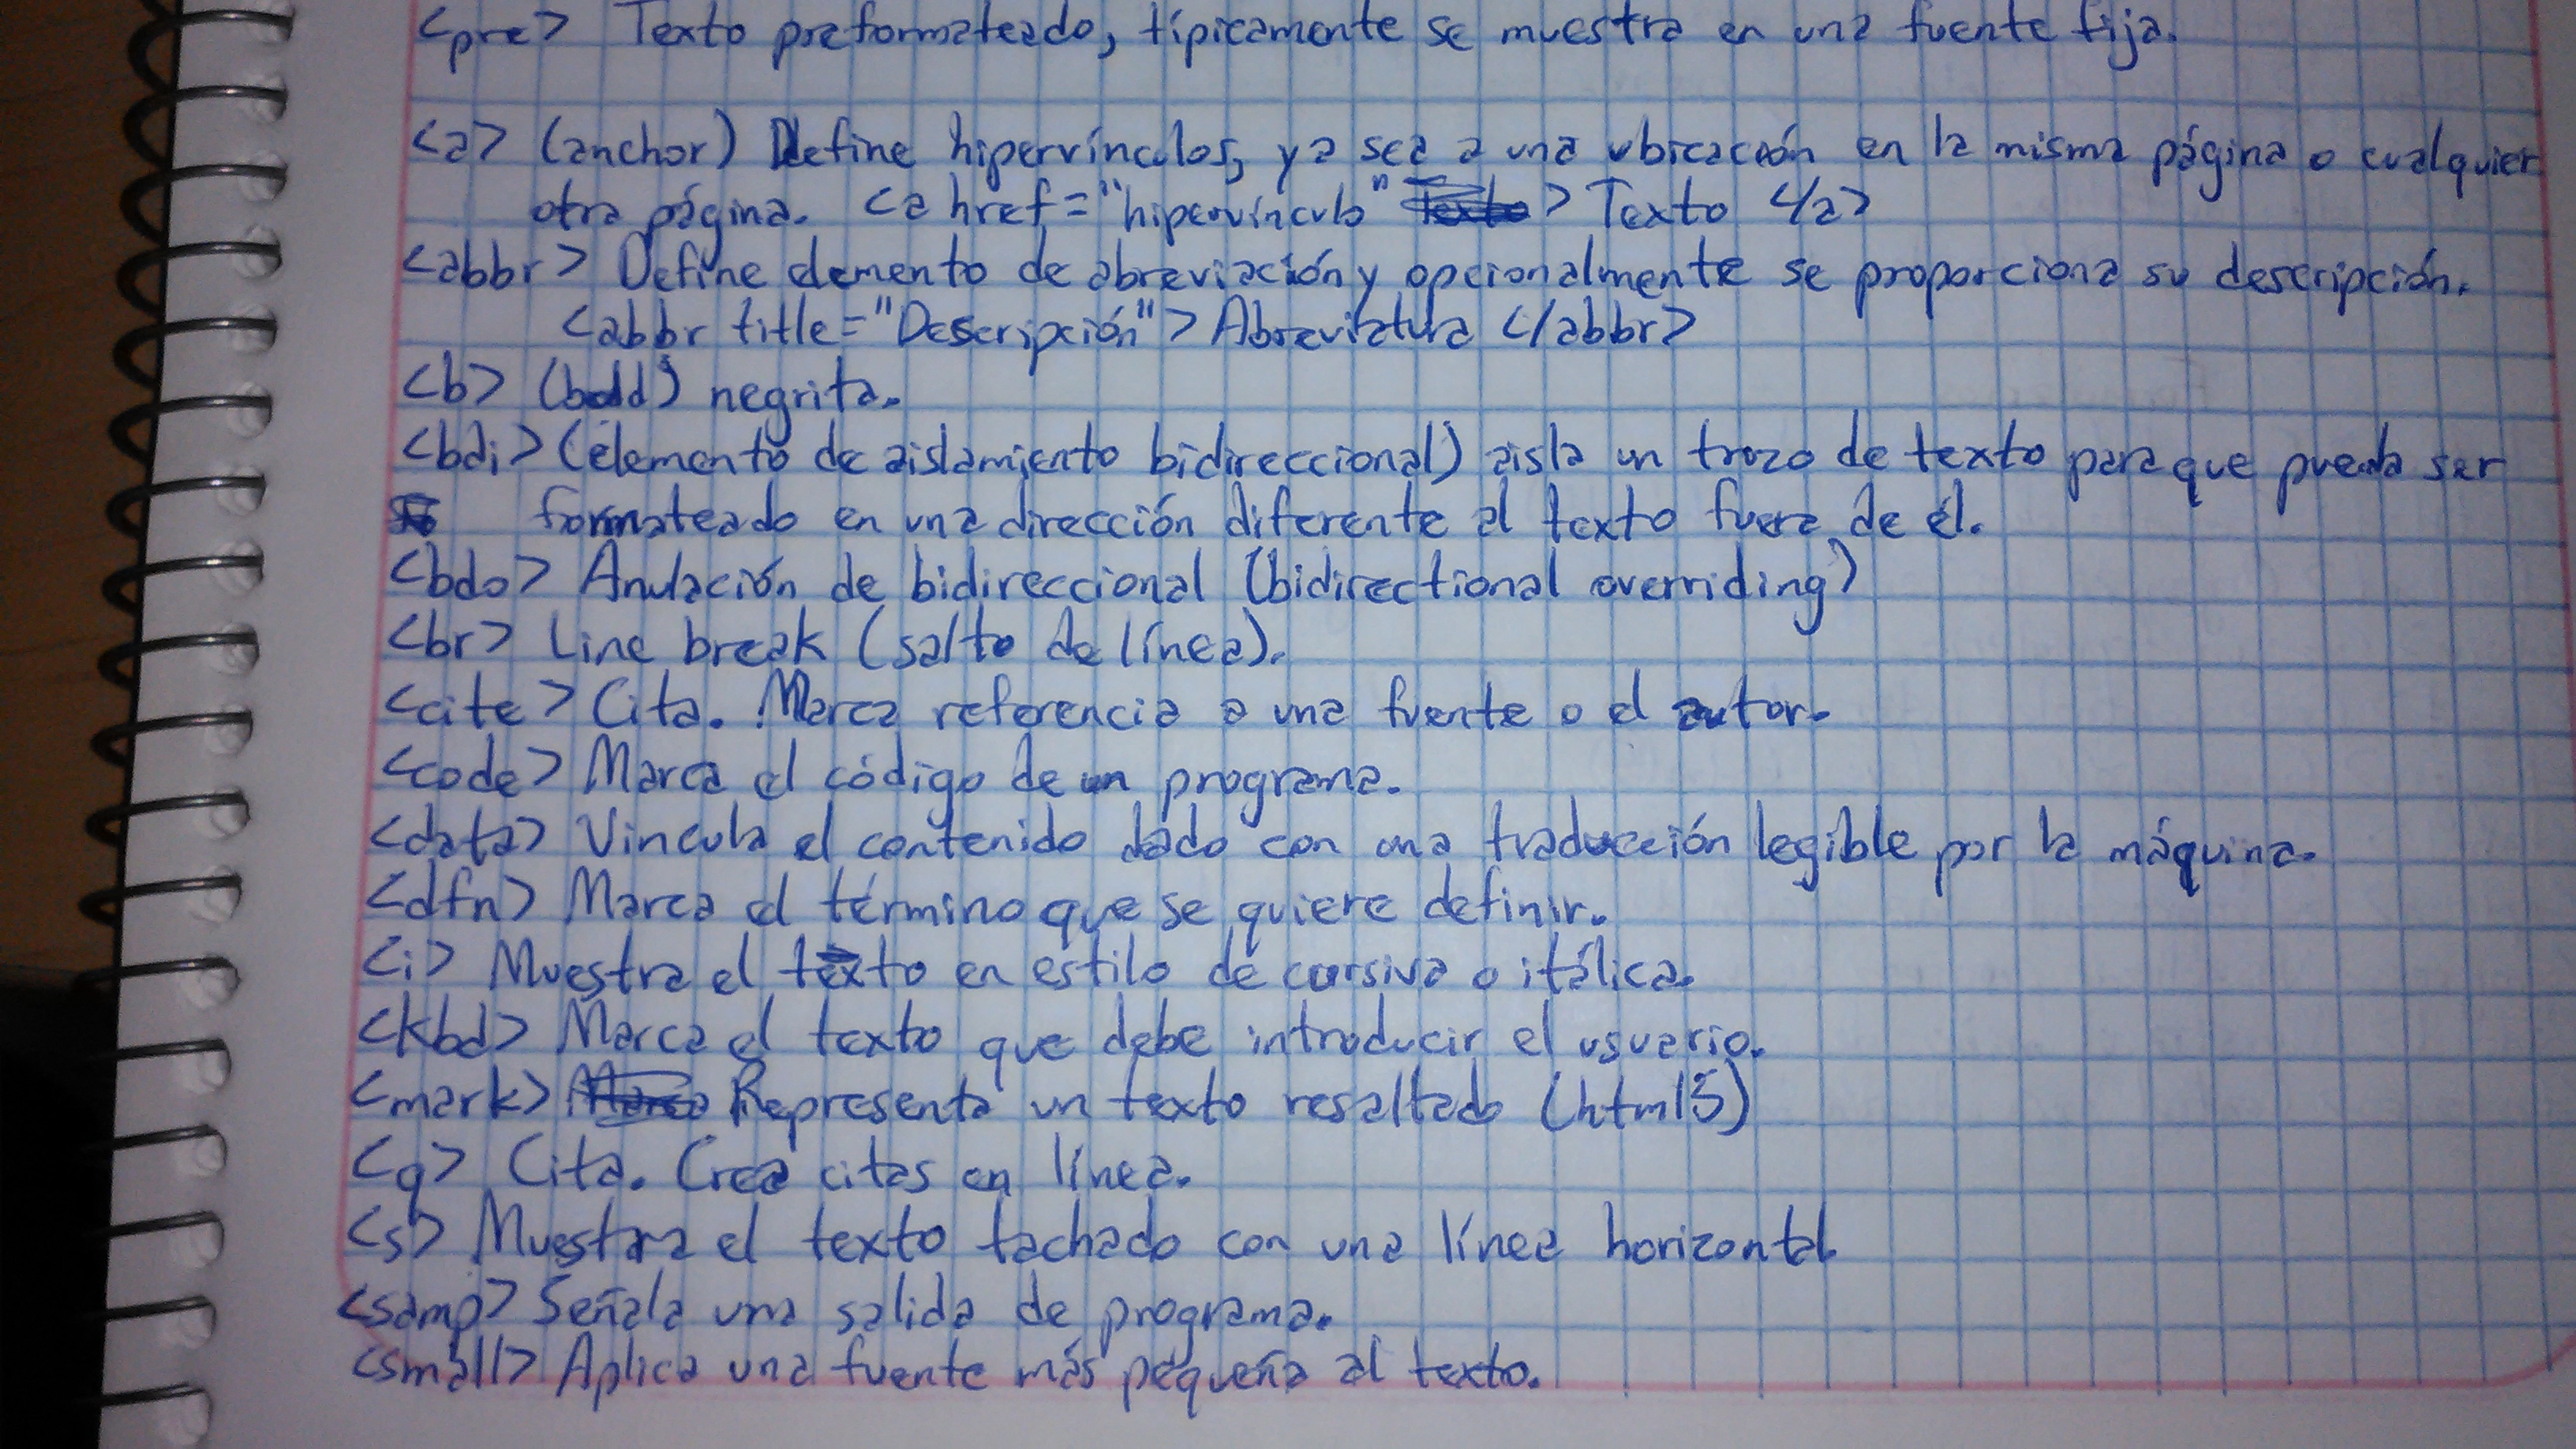 <pre> Texto preformateado, típicamente se muestra en una fuente fija.
<a> (anchor) Define hipervínculos, ya sea a una ubicación en la misma página o cualquier
otra página. <a href="hipervínculo" > Texto </a>
<abbr> Define elemento de abreviación y opcionalmente se proporciona su descripción.
<abbr title="Descripción"> Abreviatura </abbr>
<b> (bold) negrita.
<bdi> (elemento de aislamiento bidireccional) aisla un trozo de texto para que pueda ser
formateado en una dirección diferente al texto fuera de él.
<bdo> Anulación de bidireccional (bidirectional overriding)
<br> Line break (salto de línea).
<cite> Cita. Marca referencia a una fuente o el autor.
<code> Marca el código de un programa.
<data> Vincula el contenido dado con una traducción legible por la máquina.
<dfn> Marca el término que se quiere definir.
<i> Muestra el texto en estilo de cursiva o itálica.
<kbd> Marca el texto que debe introducir el usuario.
<mark> Representa un texto resaltado (html5)
<q> Cita. Crea citas en línea.
<s> Muestra el texto tachado con una línea horizontal.
<samp> Señala una salida de programa.
<small> Aplica una fuente más pequeña al texto.